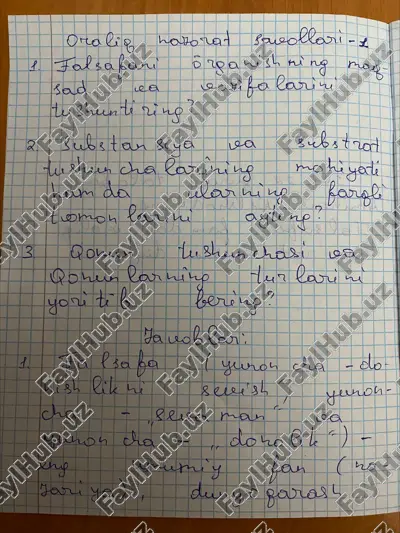 Oraliq nazorat savollari-1
1. Falsafani o'rganishning maq
sad va vazifalarini
tushuntiring?
2. Substansiya va substrat
tushunchalarining mohiyati
hamda ularning farqli
tomonlarini ayting?
3. Qonun tushunchasi va
Qonunlarning turlarini
yoritib bering?
Javoblar:
1. Falsafa (yunoncha - do-
nishlikni sevish, yunon-
cha - "sevaman" va
yunoncha - "donolik") -
eng umumiy fan (na-
zariya), dunyoqarash
FaylHub.uz